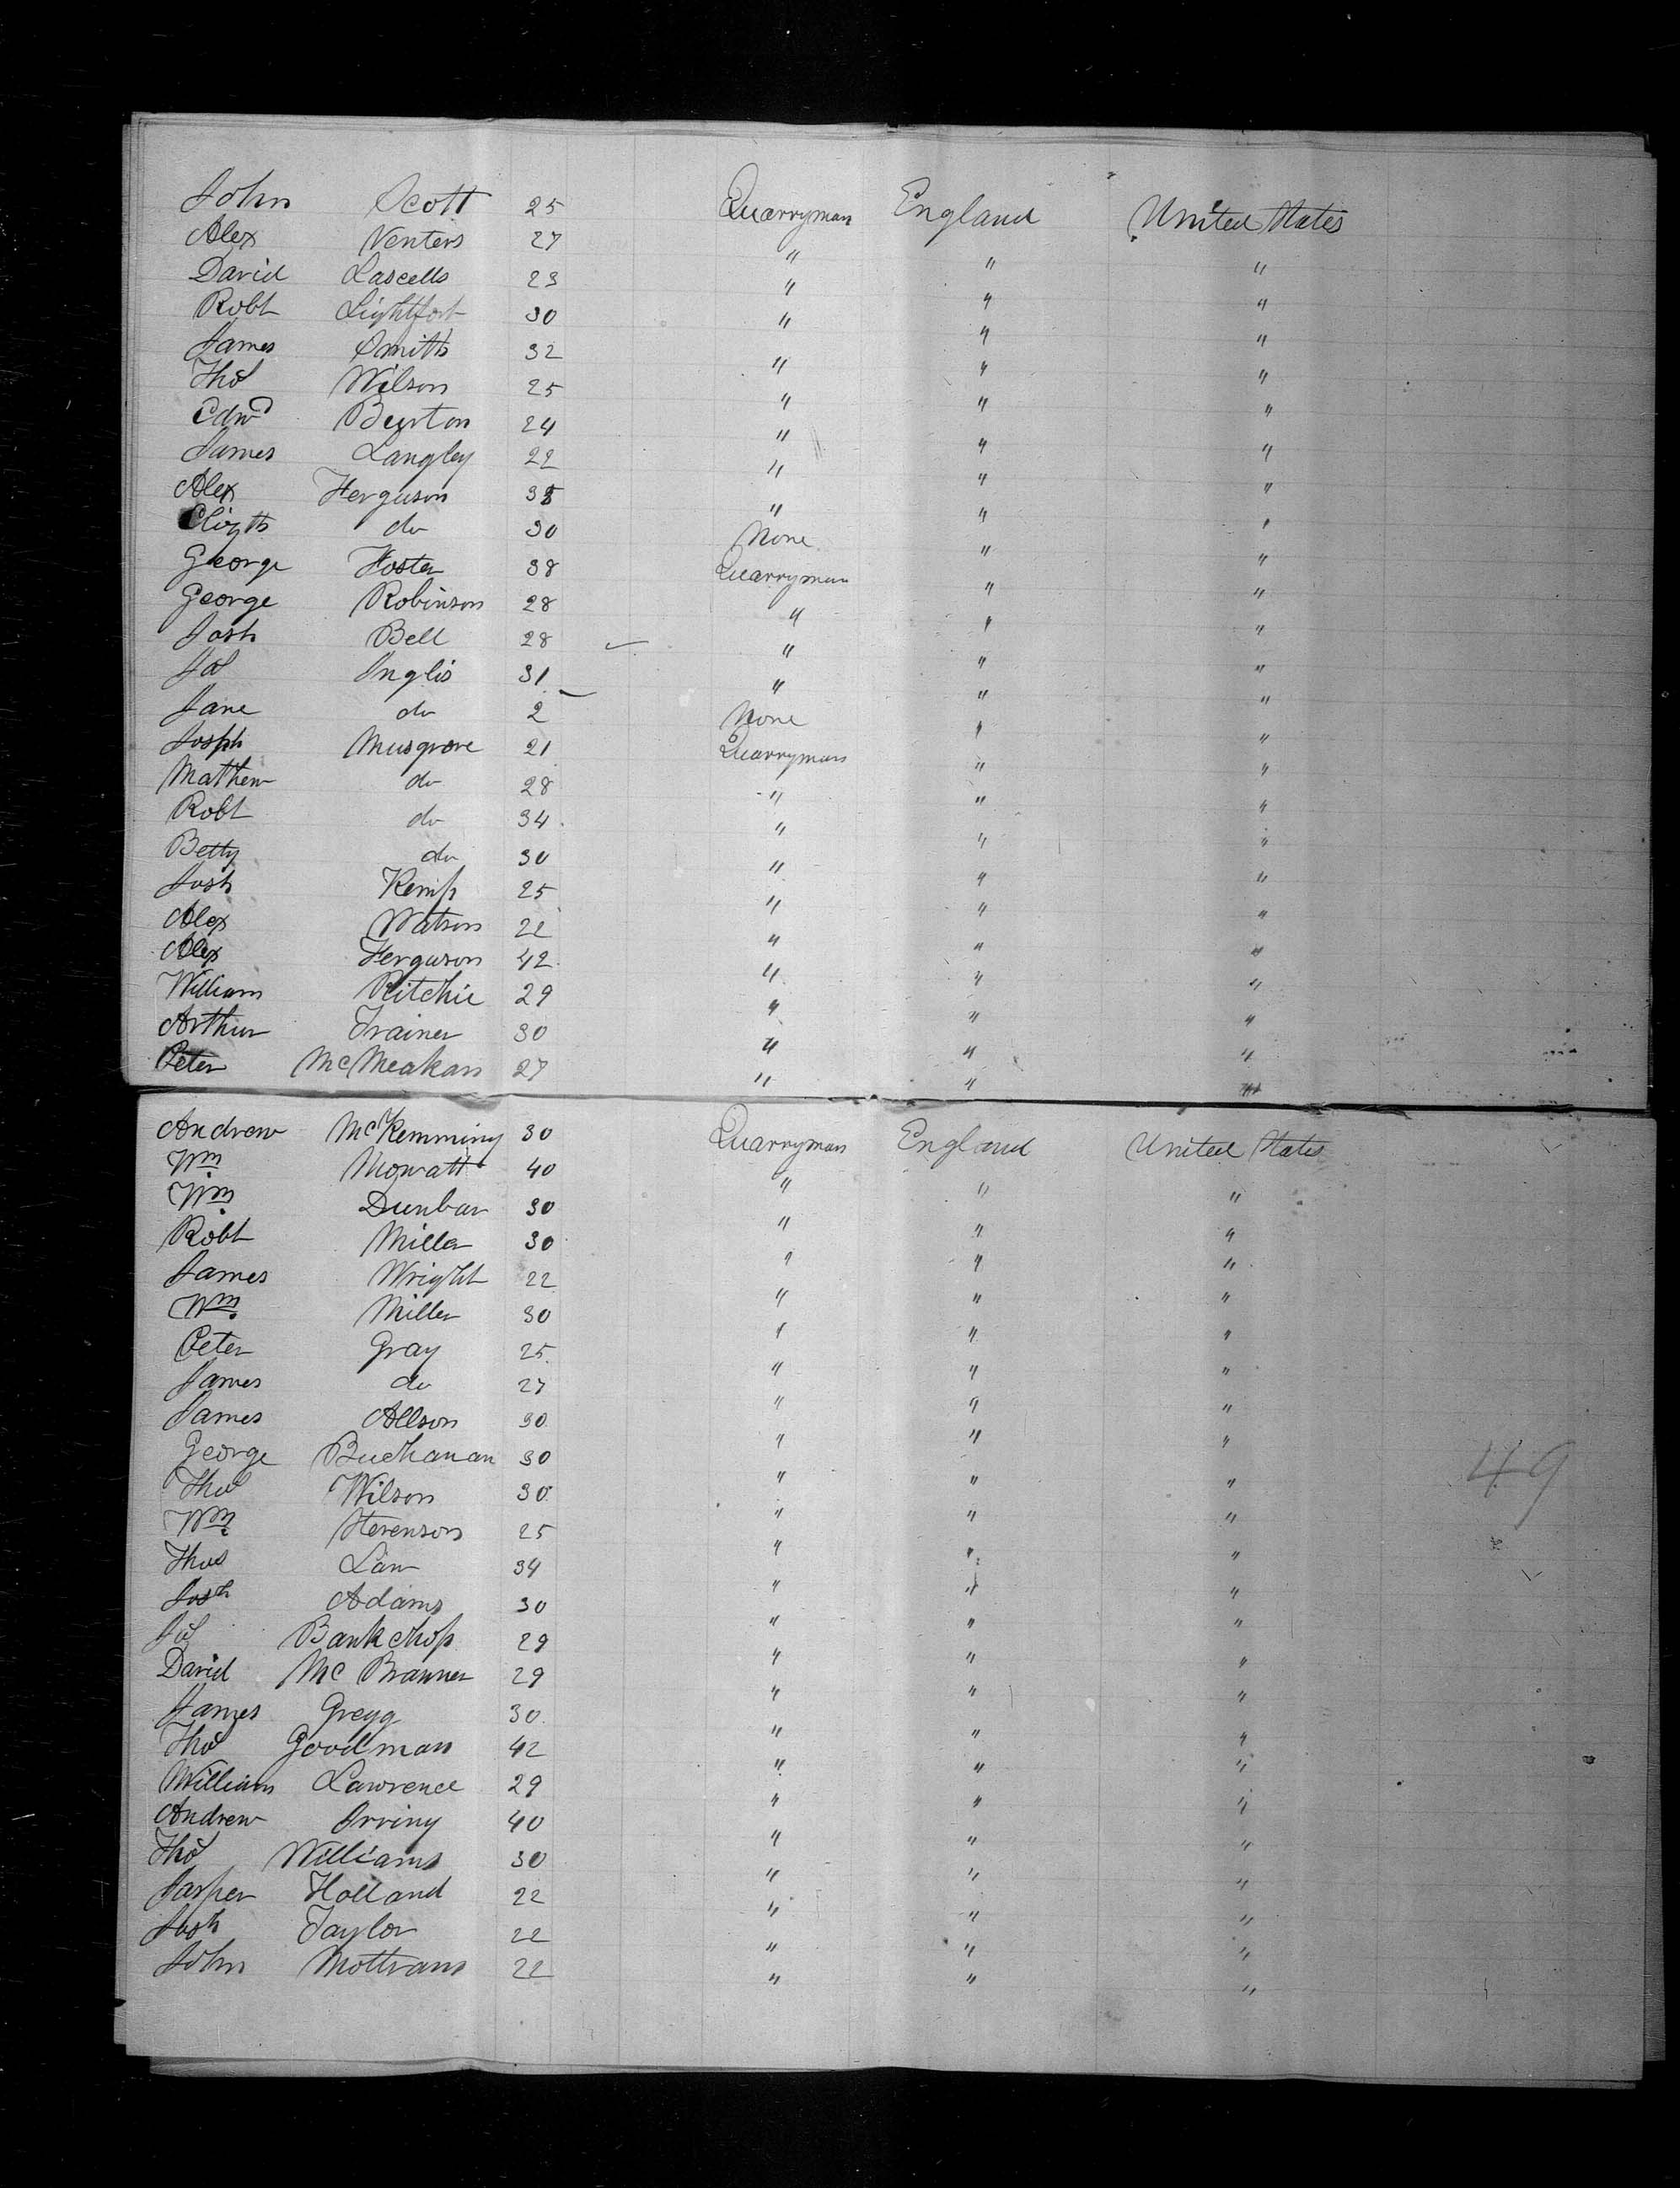 John Scott 25 Quarryman England United States
Alex Venters 27 " " "
David Lascells 23 " " "
Robt Lightfoot 30 " " "
James Smith 32 " " "
Thos Wilson 25 " " "
Edwd Burton 24 " " "
James Langley 22 " " "
Alex Ferguson 38 " " "
Elizth do 30 None " "
George Foster 38 Quarryman " "
George Robinson 28 " " "
Josh Bell 28 " " "
Jos Inglis 31 " " "
Jane do 2 None " "
Josph Musgrove 21 Quarryman " "
Mathew do 28 " " "
Robt do 34 " " "
Betty do 30 " " "
Josh Kemp 25 " " "
Alex Watson 22 " " "
Alex Ferguson 42 " " "
William Ritchie 29 " " "
Arthur Trainer 30 " " "
Peter McMeakan 27 " " "
Andrew McKemming 30 Quarryman England United States
Wm Mowatt 40 " " "
Wm Dunbar 30 " " "
Robt Miller 30 " " "
James Wright 22 " " "
Wm Miller 30 " " "
Peter Gray 25 " " "
James do 27 " " "
James Allson 30 " " "
George Buchanan 30 " " "
Thos Wilson 30 " " "
Wm Stevenson 25 " " "
Thos Law 34 " " "
Josh Adams 30 " " "
Jos Bankchop 29 " " "
David McBranner 29 " " "
James Gregg 30 " " "
Thos Goodman 42 " " "
William Lawrence 29 " " "
Andrew Irving 40 " " "
Thos Williams 30 " " "
Jasper Holland 22 " " "
Josh Taylor 22 " " "
John Mottram 22 " " "
49